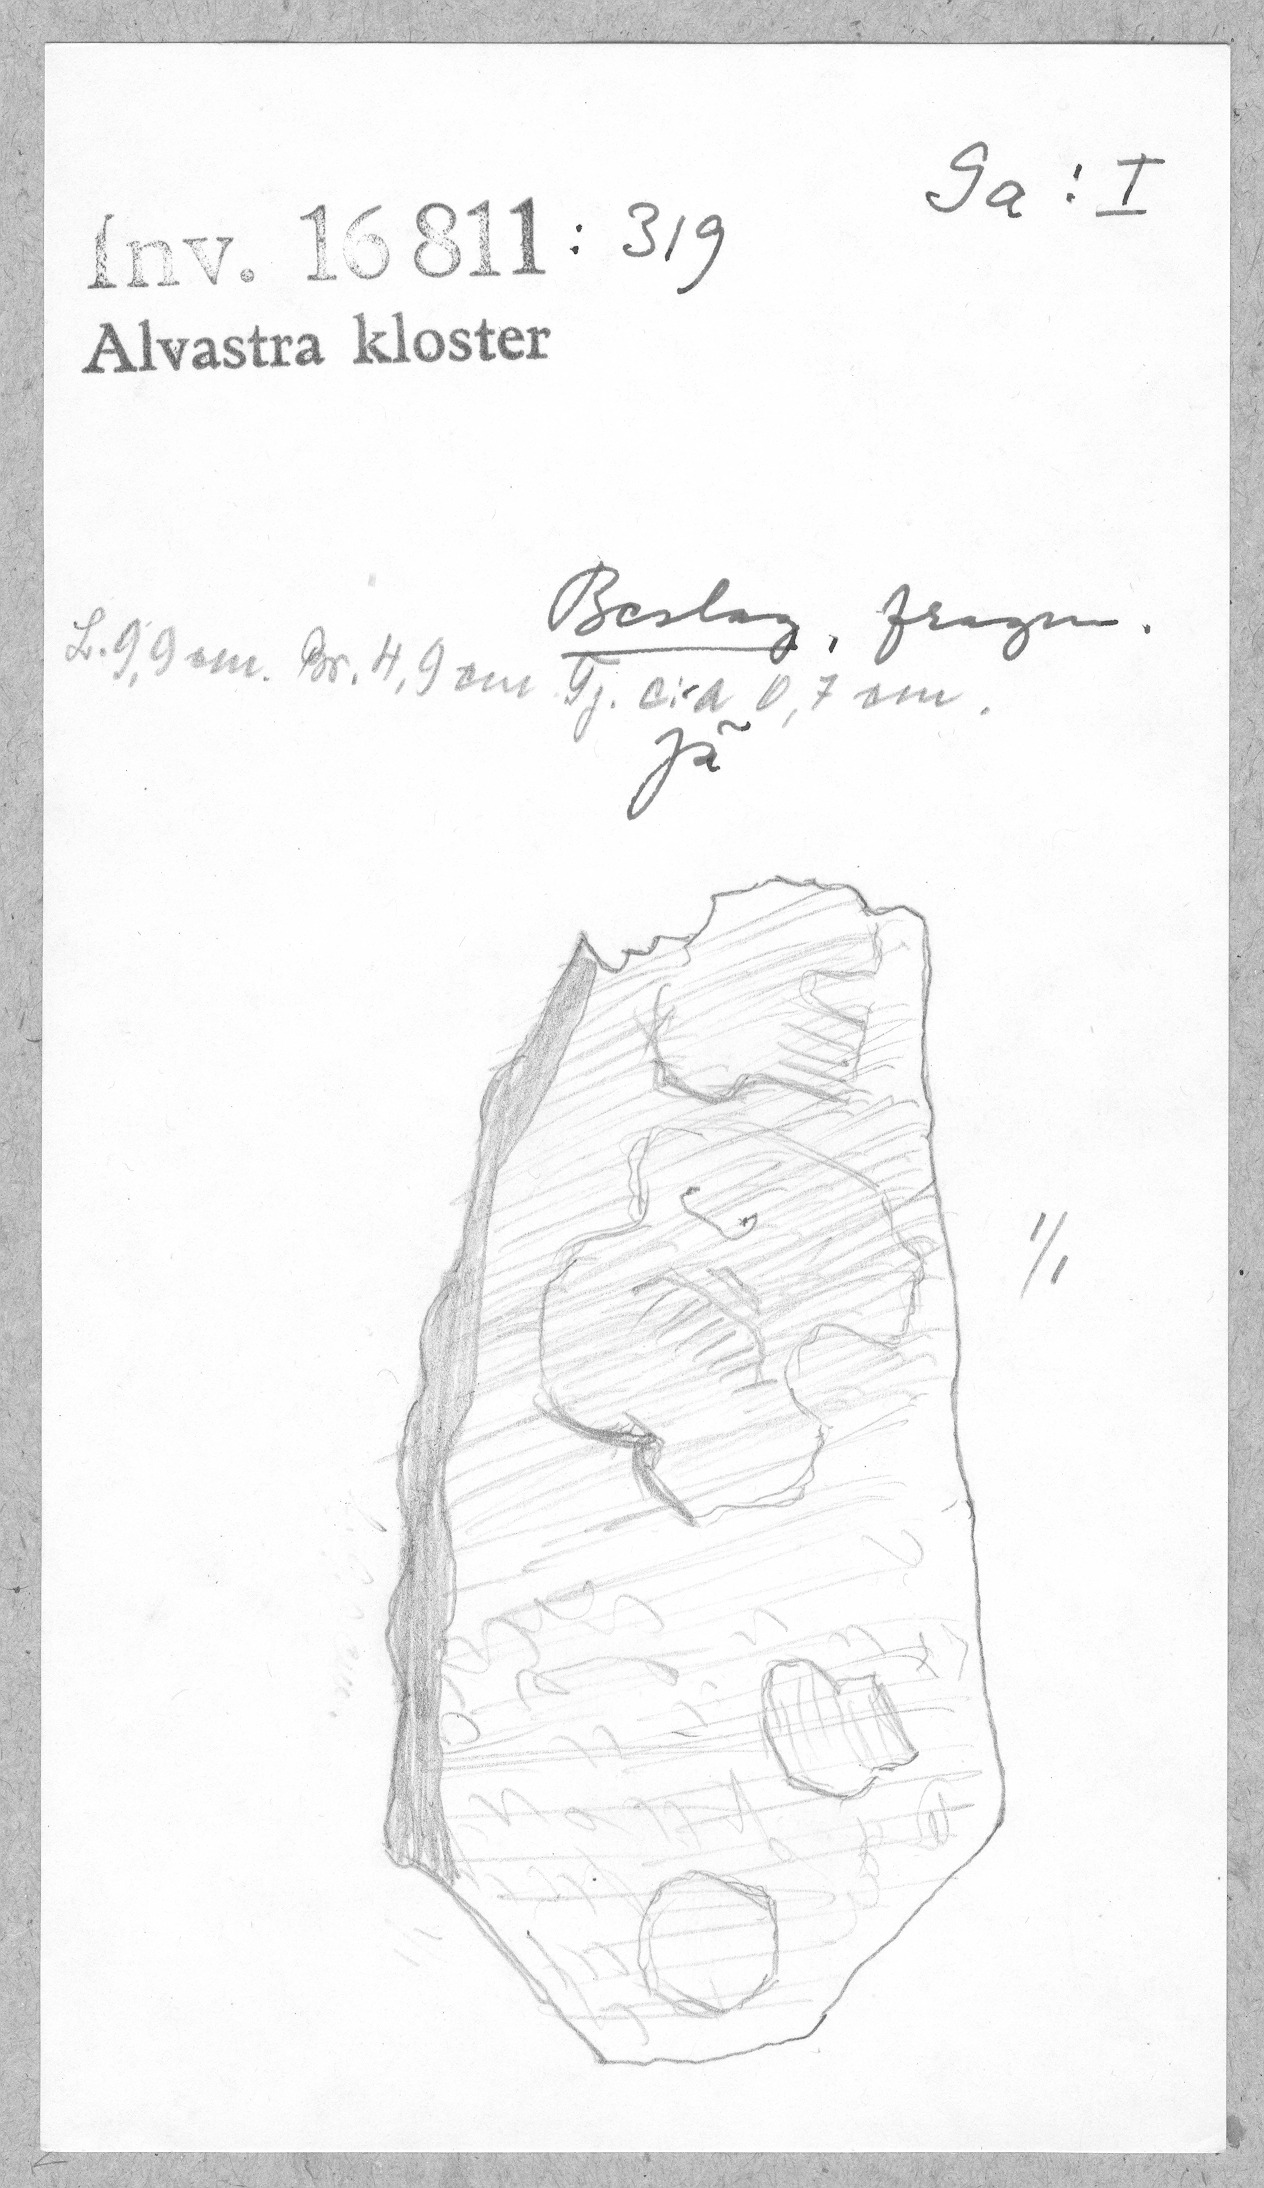 Ga : I
Inv. 16 811 : 319
Alvastra kloster
Beslag, fragm.
L. 9,9 cm. Br. 4,9 cm Tj. c:a 0,7 cm.
1/1